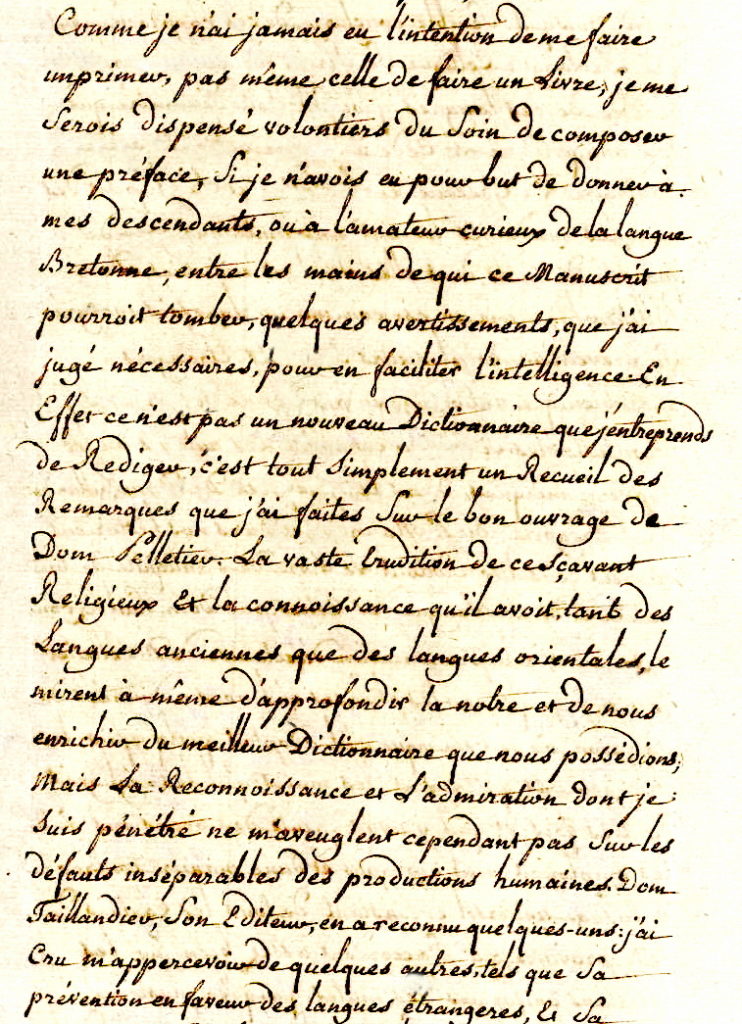 Comme je n'ai jamais eu l'intention de me faire
imprimer, pas même celle de faire un Livre, je me
Serois dispensé volontiers du Soin de composer
une préface, Si je n'avois eu pour but de donner à
mes descendants, ou à l'amateur curieux de la langue
Bretonne, entre les mains de qui ce Manuscrit
pourroit tomber, quelques avertissements, que j'ai
jugé nécessaires, pour en faciliter l'intelligence. En
Effet ce n'est pas un nouveau Dictionnaire que j'entreprends
de Rediger, c'est tout Simplement un Recueil des
Remarques que j'ai faites Sur le bon ouvrage de
Dom Pelletier. La vaste Erudition de ce Sçavant
Religieux Et la connoissance qu'il avoit, tant des
Langues anciennes que des langues orientales, le
mirent à même d'approfondir la notre et de nous
enrichir du meilleur Dictionnaire que nous possédions;
Mais La Reconnoissance et L'admiration dont je
Suis pénétré ne m'aveuglent cependant pas Sur les
défauts inséparables des productions humaines. Dom
Taillandier, Son Editeur, en a reconnu quelques-uns: j'ai
Cru m'appercevoir de quelques autres, tels que Sa
prévention en faveur des langues étrangeres, Et Sa